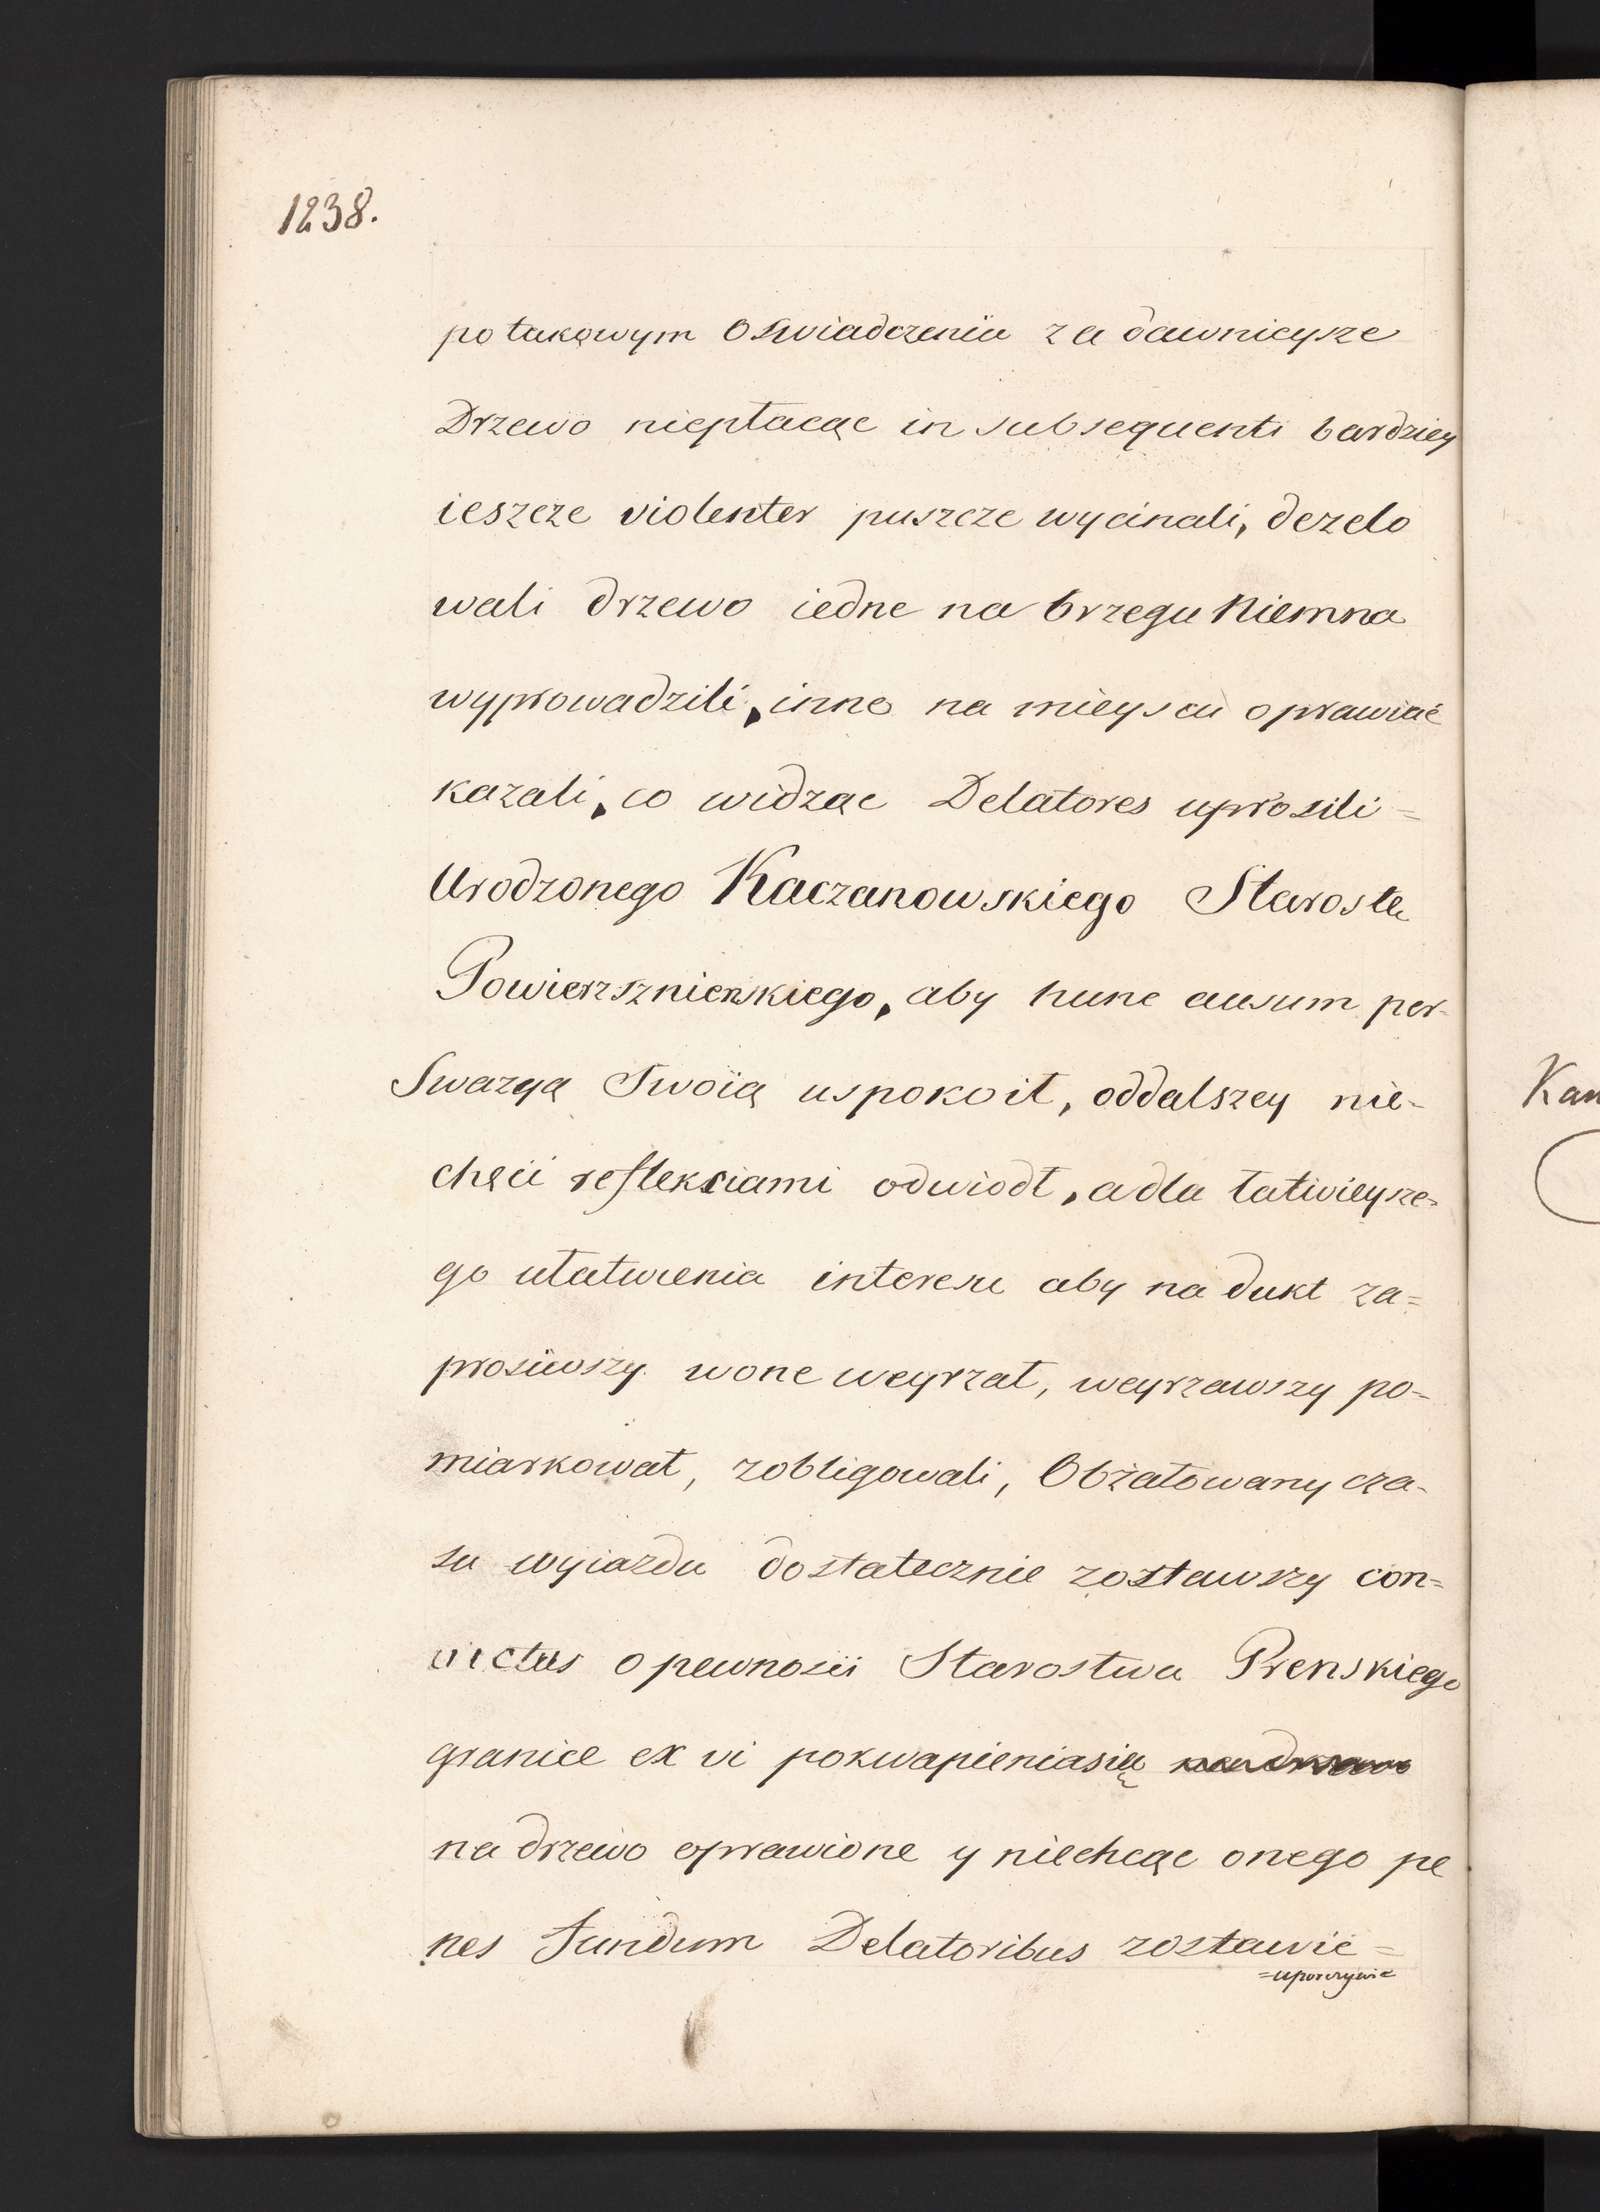 1238.
po takowym Oswiadczeniu za dawnieysze
Drzewo niepłacąc in subsequenti bardziey
ieszcze violenter puszcze wycinali, dezelo
wali drzewo iedne na brzegu Niemna
wyprowadzili, inne na mieyscu oprawiać
kazali, co widząc Delatores uprosili =
Urodzonego Kaczanowskiego Starostę
Powierzsznienskiego, aby hunc ausum per-
Swazyą Swoią uspokoił, oddalszey nie-
chęci refleksiami odwiodł, adla łatwieysze-
go ułatwienia interesu aby na dukt za=
prosiwszy wone weyrzał, weyrzawszy po-
miarkował, zobligowali, Obżałowany cza-
su wyiazdu dostatecznie zostawszy con=
victus o pewnosci Starostwa Prenskiego
granice ex vi pokwapieniasię
na drzewo oprawione y niechcąc onego pe
nes Fundum Delatoribus zostawić =
=uporczywie
Kan